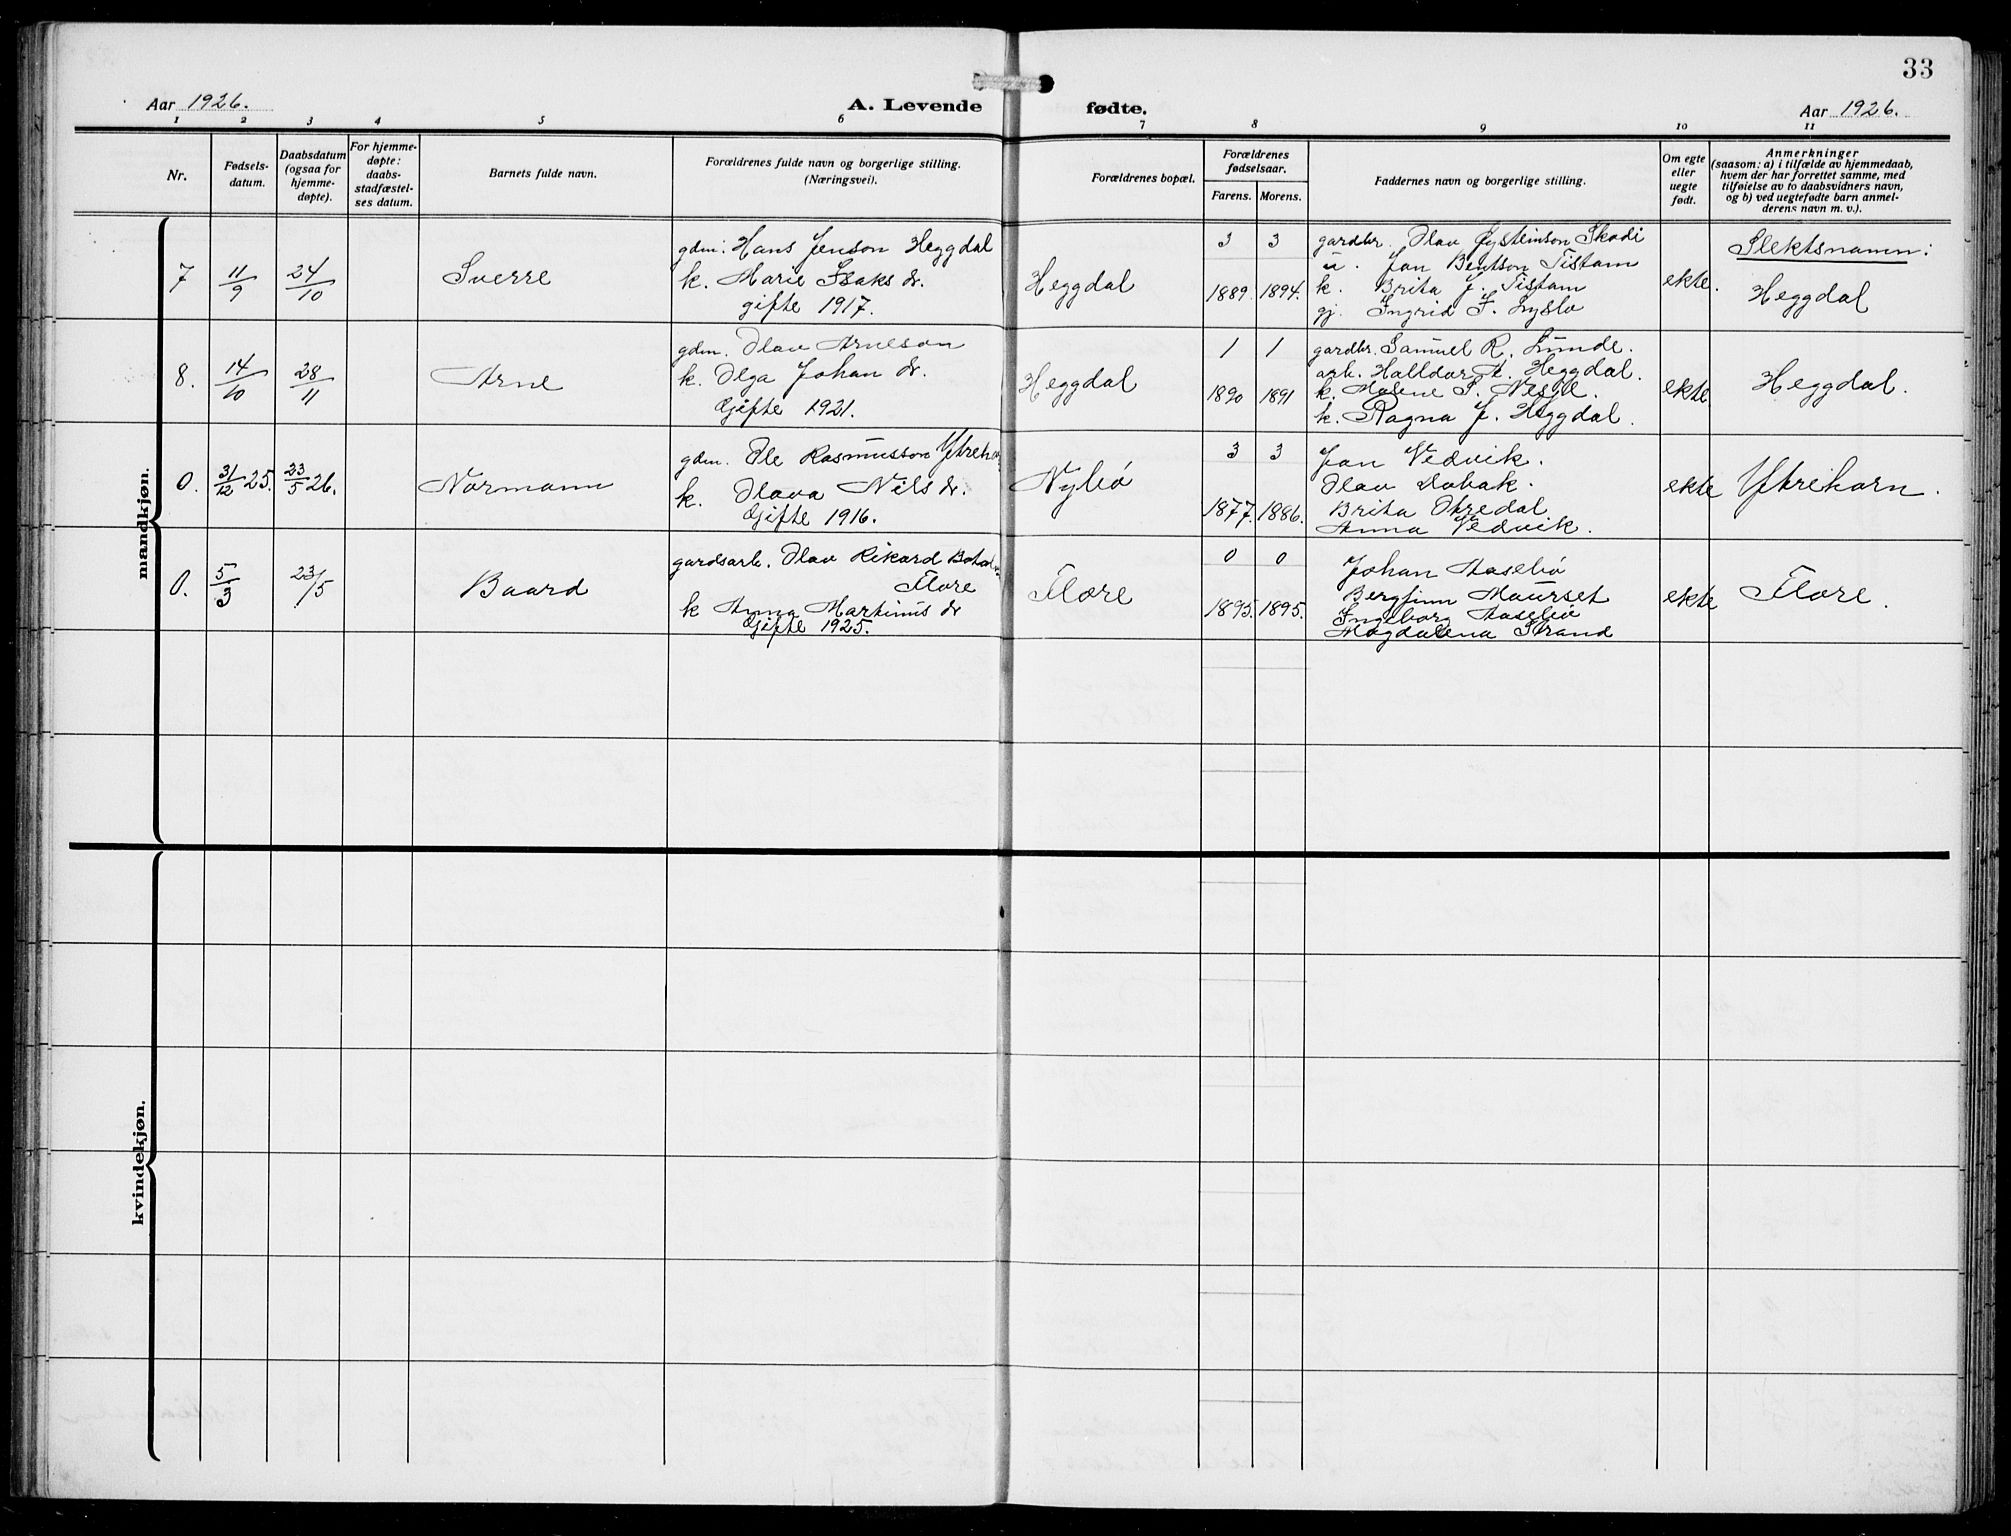 33
Aar 1926.
A. Levende fødte.
Aar 1926.
1 2 3 4 5 6 7 8 9 10 11
Nr.
Fødsels-
datum.
Daabsdatum
(ogsaa for
hjemme-
døpte).
For hjemme-
døpte:
daabs-
stadfæstel-
ses datum.
Barnets fulde navn.
Forældrenes fulde navn og borgerlige stilling.
(Næringsvei).
Forældrenes bopæl.
Forældrenes
fødselsaar.
Farens. Morens.
Faddernes navn og borgerlige stilling.
Om egte
eller
uegte
født.
Anmerkninger
(saasom: a) i tilfælde av hjemmedaab,
hvem der har forrettet samme, med
tilføielse av to daabsvidners navn,
og b) ved uegtefødte barn anmel-
derens navn m. v.).
mandkjøn.
7 11/9 24/10 Sverre
gdm: Hans Jenson Heggdal
k. Marie Isaks dr.
gifte 1917.
Heggdal
3 3
1889. 1894.
gardbr. Olav Øysteinson Skodi
u. Jon Bentson Tistam
k. Brita J. Tistam
gj. Ingrid J. Lyslo
ekte.
Slektsnamn:
Heggdal
8. 14/10 28/11 Arne
gdm. Olav Arneson
k. Olga Johan dr.
Gifte 1921.
Heggdal
1 1
1890 1891
gardbr. Samuel R. Lunde.
arb. Halldor A. Heggdal.
k. Malene S. Nesje.
k. Ragna J. Heggdal.
ekte
Heggdal.
0. 31/12 25. 23/5 26. Normann
gdm. Ole Rasmusson Ytrehorn
k. Olava Nils dr.
Gifte 1916.
Nybø
3 3
1877. 1886.
Jon Vedvik.
Olav Dobak.
Brita Otredal
Anna Vedvik.
ekte
Ytrehorn.
0. 5/3 23/5 Baard
gardsarb. Olav Rikard
Flore
k Anna Martinus dr
Gifte 1925.
Flore
0 0
1895. 1895.
Johan Aasebø
Bergfinn Maurset
Ingeborg Aasebø
Magdalena Strand
ekte
Flore.
kvindekjøn.